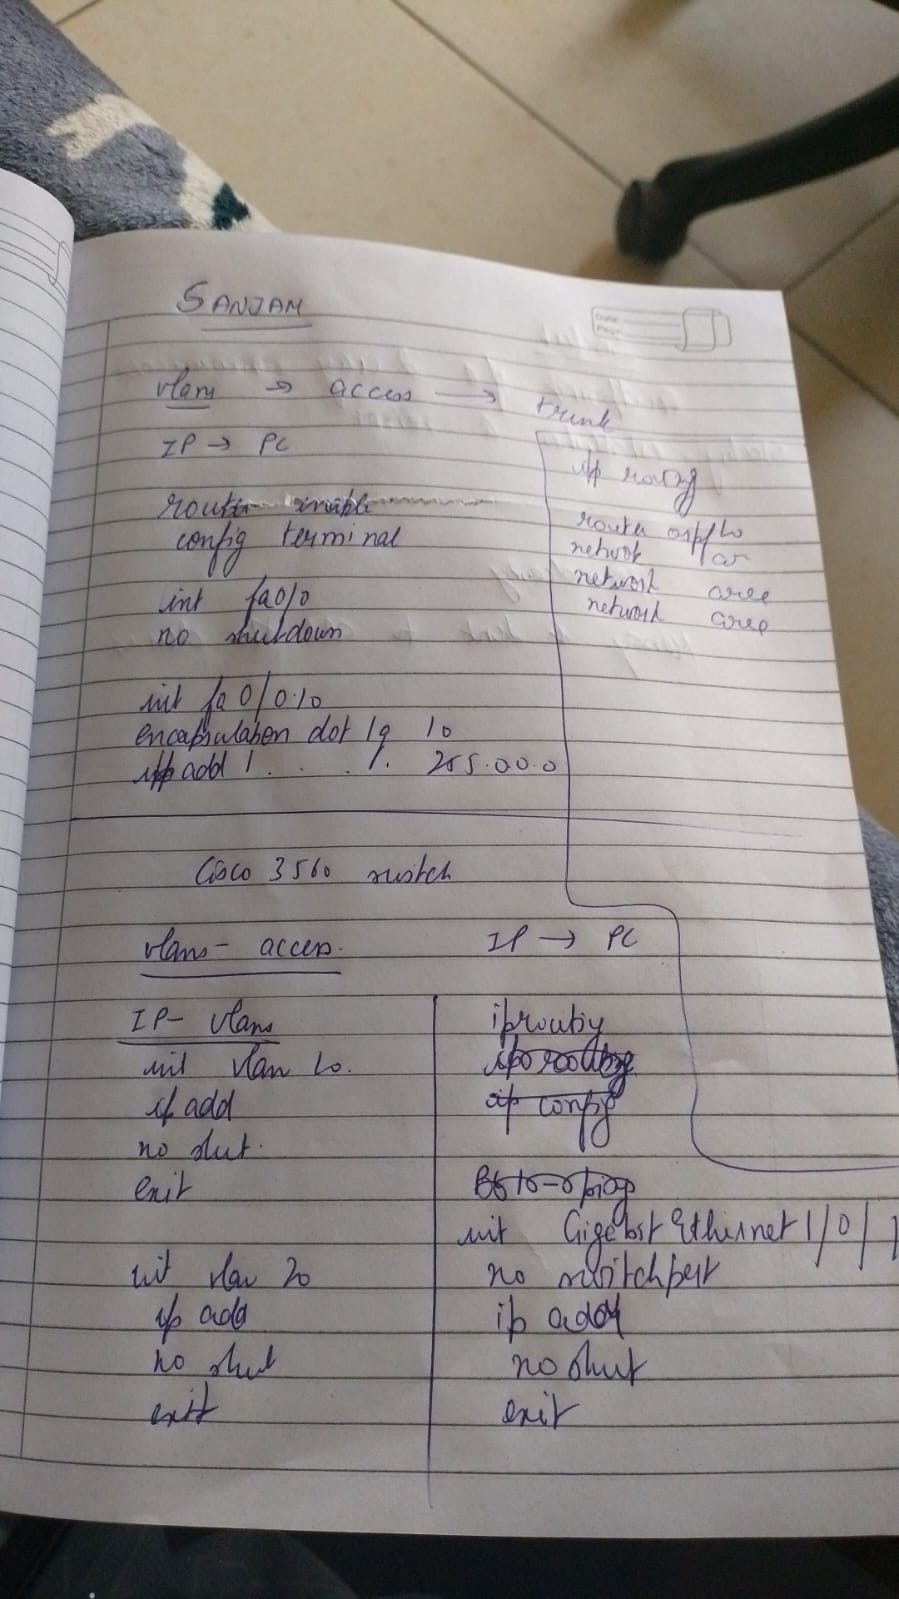 SANJAM
Date:
Page:
vlans → access → trunk
IP → PC
router enable
config terminal
int fa0/0
no shutdown
int fa 0/0.10
encapsulation dot 1q 10
ip add 1 . . . 1. 255.0.0.0
ip routing
router ospf 10
network ar
network area
network area
Cisco 3560 switch
vlans - access.
IP → PC
IP - vlans
int vlan 10.
ip add
no shut.
exit
int vlan 20
ip add
no shut
exit
ip routing
ip routing
ip config
int Gigabit Ethernet 1/0/1
no switchport
ip add
no shut
exit